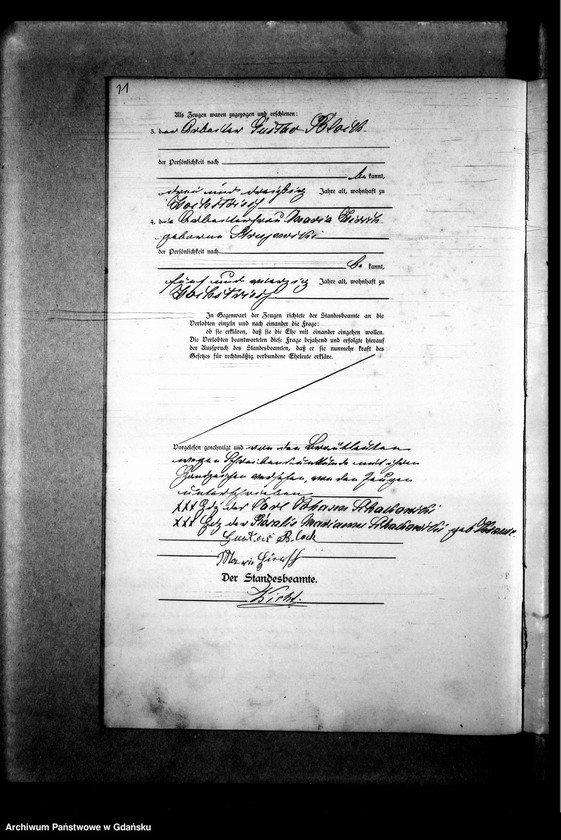 Als Zeugen waren zugezogen und erschienen:
3. der Arbeiter Gustav Block.
der Persönlichkeit nach
be kannt,
drei und dreißig Jahre alt, wohnhaft zu
4. die Arbeiterfrau Maria Hirsch
geborene
der Persönlichkeit nach
be kannt,
fünf und vierzig Jahre alt, wohnhaft zu
In Gegenwart der Zeugen richtete der Standesbeamte an die
Verlobten einzeln und nach einander die Frage:
ob sie erklären, daß sie die Ehe mit einander eingehen wollen.
Die Verlobten beantworteten diese Frage bejahend und erfolgte hierauf
der Ausspruch des Standesbeamten, daß er sie nunmehr kraft des
Gesetzes für rechtmäßig verbundene Eheleute erkläre.
Vorgelesen genehmigt und von den Brautleuten
wegen Schreibensunkunde mit ihren
Handzeichen versehen, von den Zeugen
unterschrieben
XXX Hdz des Karl Johann
XXX Hdz der Marianna geb
Gustav Block
Marie Hirsch
Der Standesbeamte.
Archiwum Państwowe w Gdańsku